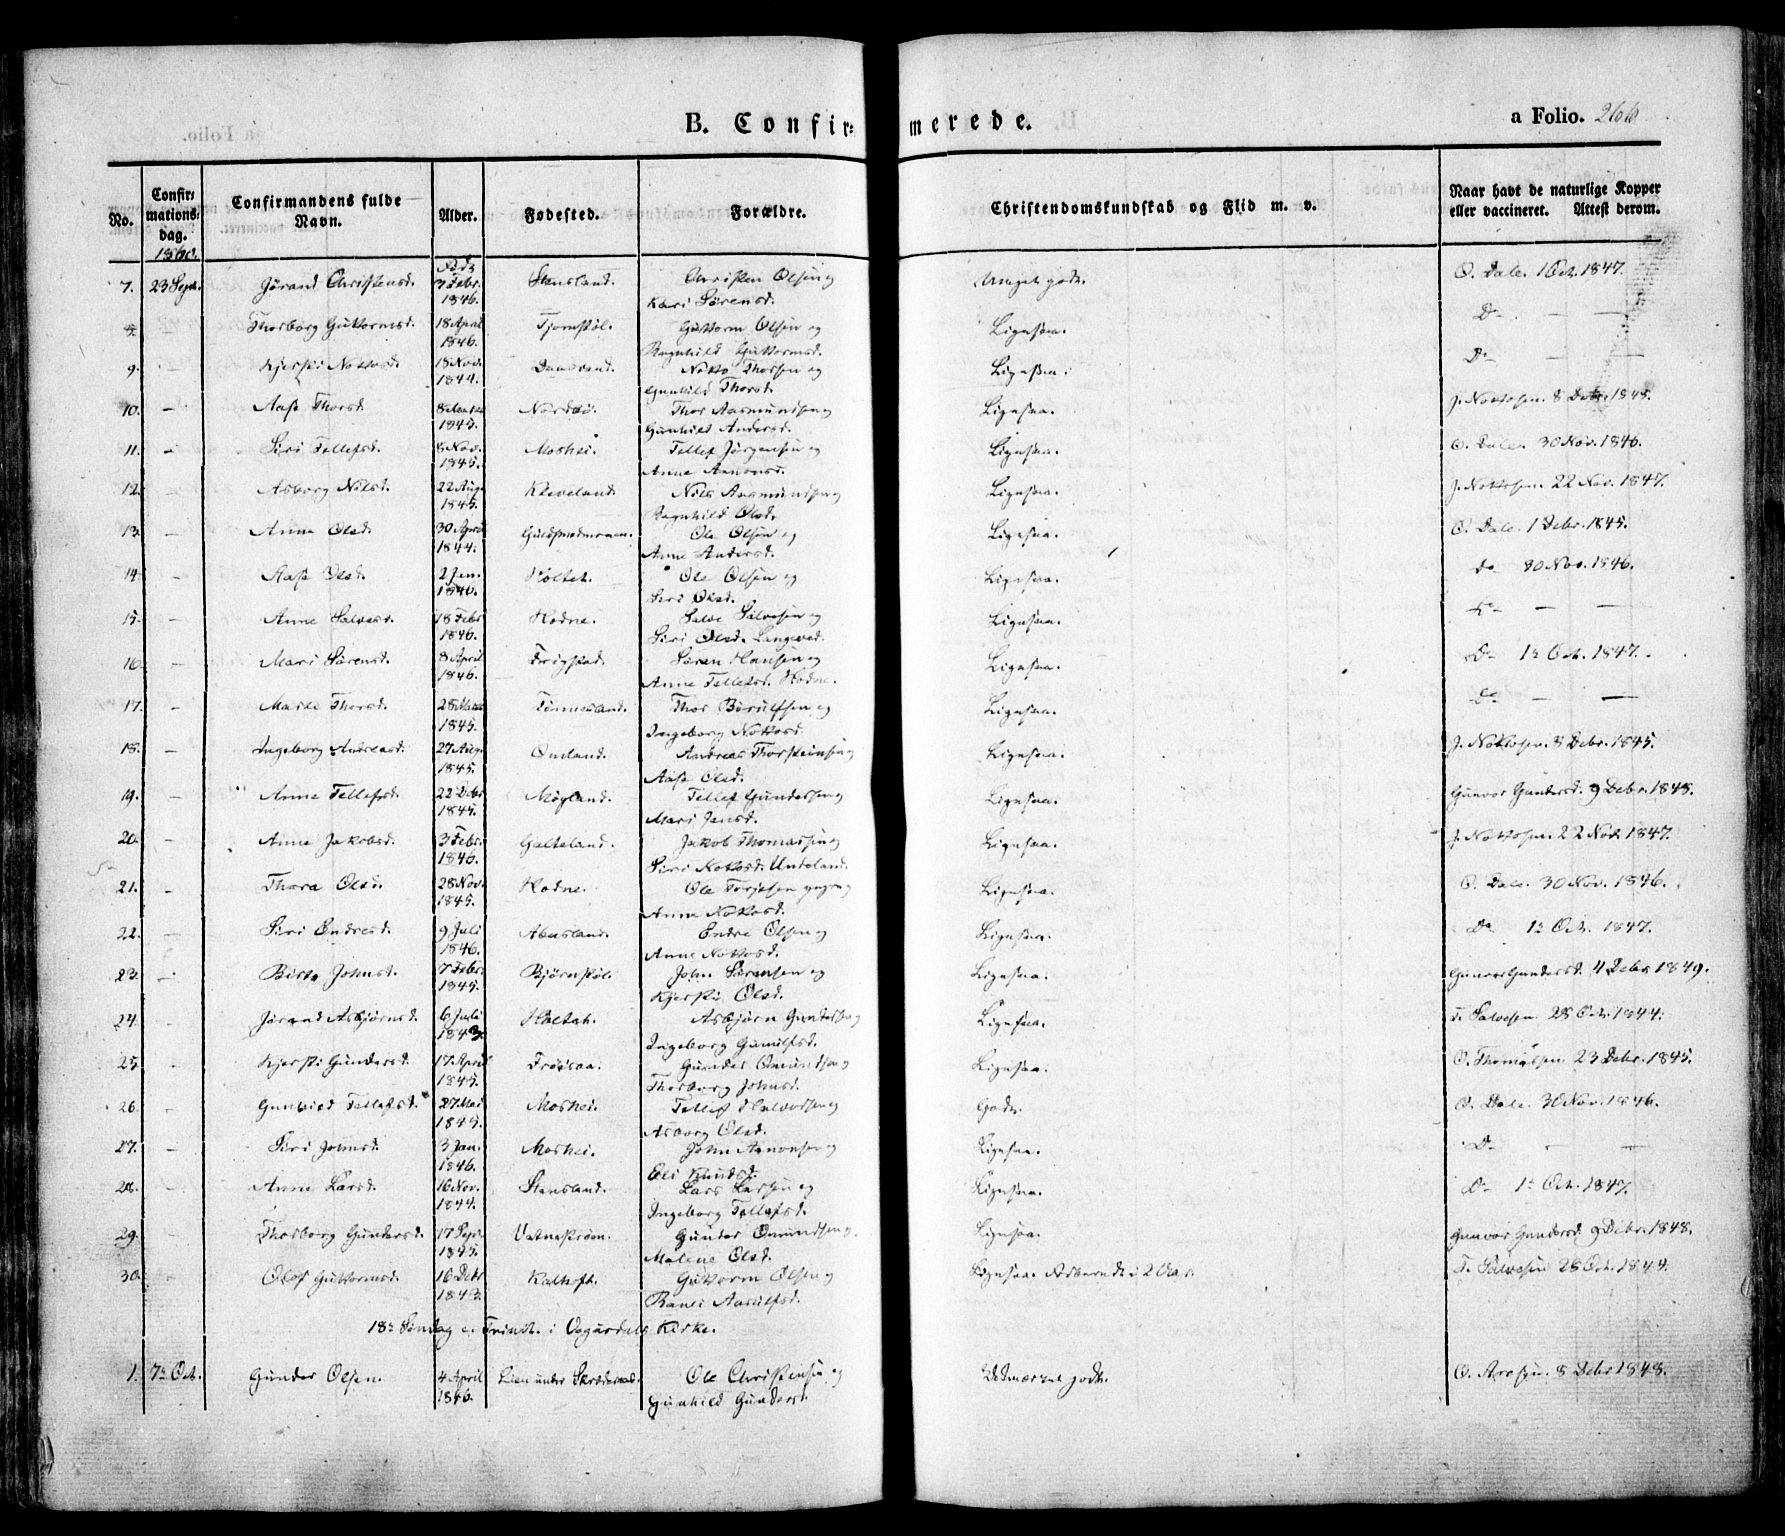 B. Confir- merede.
a Folio. 266
No. Confir- mations- dag. Confirmandens fulde Navn. Alder. Fødested. Forældre. Christendomskundskab og Flid m. v. Naar havt de naturlige Kopper eller vaccineret. Attest derom.
1860.
7. 23 Sept. Jørand Christensd. 7 Febr. 1846. Stensland. Christen Olsen og Kari Sørensd. Meget godt. O. Dale. 1 Oct. 1847.
8. Thorborg Guttormsd. 18 April 1846. Guttorm Olsen og Ragnhild Guttormsd. Ligesaa. Do — —
9. Kjersti Nottosd. 18 Nov. 1844. Notto Thorsen og Gunhild Thorsd. Ligesaa. Do — —
10. — Aase Thorsd. 1845. Thor Aasmundsen og Gunhild Andersd. Ligesaa. J. Nottosen. 8 Debr. 1845.
11. — Siri Tellefsd. 8 Nov. 1845. Moshei. Tellef Jørgensen og Anne Aanonsd. Ligesaa. O. Dale. 30 Nov. 1846.
12. — Asborg Nilsd. 22 Aug. 1845. Kleveland. Nils Aasmundsen og Ragnhild Olsd. Ligesaa. J. Nottosen. 22 Nov. 1847.
13. — Anne Olsd. 30 April 1844. Ole Olsen og Anne Andersd. Ligesaa. O. Dale. 1 Debr. 1845.
14. — Aase Olsd. 2 Jan. 1846. Holtet. Ole Olsen og Siri Olsd. Ligesaa. do 30 Nov. 1846.
15. — Anne Salvesd. 18 Febr. 1846. Hodne. Salve Salvesen og Siri Olsd. Langeved. Ligesaa. Do — —
16. — Mari Sørensd. 8 April 1846. Frigstad. Søren Hansen og Anne Tellefsd. Hodne. Ligesaa. Do 1ste Oct. 1847.
17. — Marte Thorsd. 1845. Tønnesland. Thor Børulfsen og Ingeborg Nottosd. Ligesaa. do — —
18. — Ingeborg Andreasd. 27 Aug. 1845. Omland. Andreas Thorsteinsen og Aase Olsd. Ligesaa. J. Nottosen. 8 Debr. 1845.
19. — Anne Tellefsd. 22 Debr. 1845. Møgland. Tellef Gundersen og Mari Jensd. Ligesaa. Gunvor Gundersd. 9 Debr. 1848.
20. — Anne Jakobsd. 3 Febr. 1846. Galteland. Jakob Thomassen og Siri Nottosd. Undeland. Ligesaa. J. Nottosen. 22 Nov. 1847.
21. — Thora Olsd. 28 Nov. 1845. Hodne. Ole Torjesen og Anne Nottosd. Ligesaa. O. Dale. 30 Nov. 1846.
22. — Siri Endresd. 9 Juli 1846. Abusland. Endre Olsen og Anne Nottosd. Ligesaa. Do 1ste Oct. 1847.
23. — Birte Johnsd. 7 Febr. 1845. Bjørnstøl. John Sørensen og Kjersti Olsd. Ligesaa. Gunvor Gundersd. 4 Debr. 1849.
24. — Jørand Asbjørnsd. 6 Juli Holtet. Asbjørn Gundersen og Ingeborg Gunulfsd. Ligesaa. T. Salvesen 28 Oct. 1844.
25. — Kjersti Gundersd. 17 April 1845. Frøisaa. Gunder Omundsen og Thorborg Johnsd. Ligesaa. O. Thomassen 23 Debr. 1845.
26. — Gunhild Tellefsd. 27 Mai 1845. Moshei. Tellef Halvorsen og Asborg Olsd. Godt. O. Dale. 30 Nov. 1846.
27. — Siri Johnsd. 3 Jan. 1846. Moshei. John Aanonsen og Eli Knudsd. Ligesaa. Do — —
28. — Anne Larsd. 16 Nov. 1844. Stensland. Lars Larsen og Ingeborg Tellefsd. Ligesaa. Do 1ste Oct. 1847.
29. — Thorborg Gundersd. 17 Sept. 1845. Vatnestrøm. Gunder Omundsen og Malene Olsd. Ligesaa. Gunvor Gundersd. 9 Debr. 1848.
30. — Olof Guttormsd. 16 Debr. 1843. Guttorm Olsen og Ranei Aasulfsd. Ligesaa. i 2 Aar. T. Salvesen 28 Oct. 1844.
18de Søndag e. Trinit. i Vegusdals Kirke.
1. 7de Oct. Gunder Olsen. 4 April 1846. Lien under Ole Christensen og Gunhild Gundersd. Udmærket godt. O. Arosen. 8 Debr. 1848.